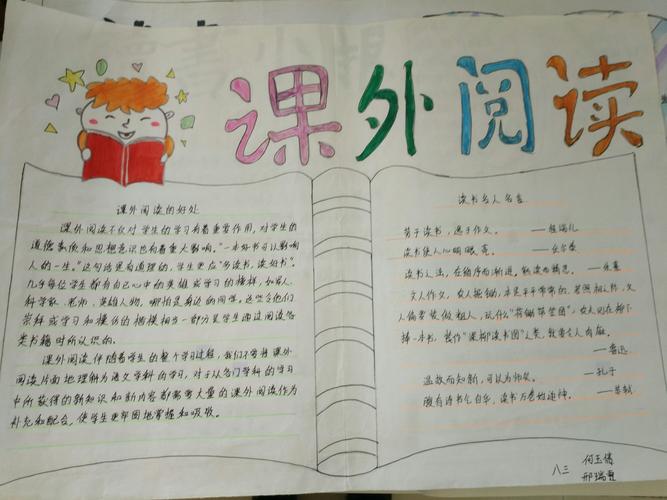 课外阅读
课外阅读的好处
课外阅读不仅对学生的学习有着重要作用,对学生的
道德素质和思想意识也有着重大影响。"一本好书可以影响
人的一生。"这句话是有道理的,学生更应"多读书,读好书"。
几乎每位学生都有自己心中的英雄或学习的榜样,如名人、
科学家、老师、英雄人物,哪怕是身边的同学。这些令他们
崇拜或学习和模仿的楷模相当一部分是学生通过阅读各
类书籍时所认识的。
课外阅读伴随着学生的整个学习过程,我们不要将课外
阅读片面地理解为语文学科的学习,对于从各门学科的学习
中所获得的新知识和新内容都需要大量的课外阅读作为
补充和配合,使学生更牢固地掌握和吸收。
读书名人名言
劳于读书,逸于作文。——程端礼
读书使人心明眼亮。——伏尔泰
读书之法,在循序而渐进,熟读而精思。——朱熹
文人作文,农人掘锄,本是平平常常的,若照相之际,文
人偏要装做粗人,玩什么"荷锄带笠图",农夫则在柳下
捧一本书,装作"深柳读书图"之类,就要令人肉麻。
——鲁迅
温故而知新,可以为师矣。——孔子
腹有诗书气自华,读书万卷始通神。——苏轼
八三
何玉倩
邢瑞雪